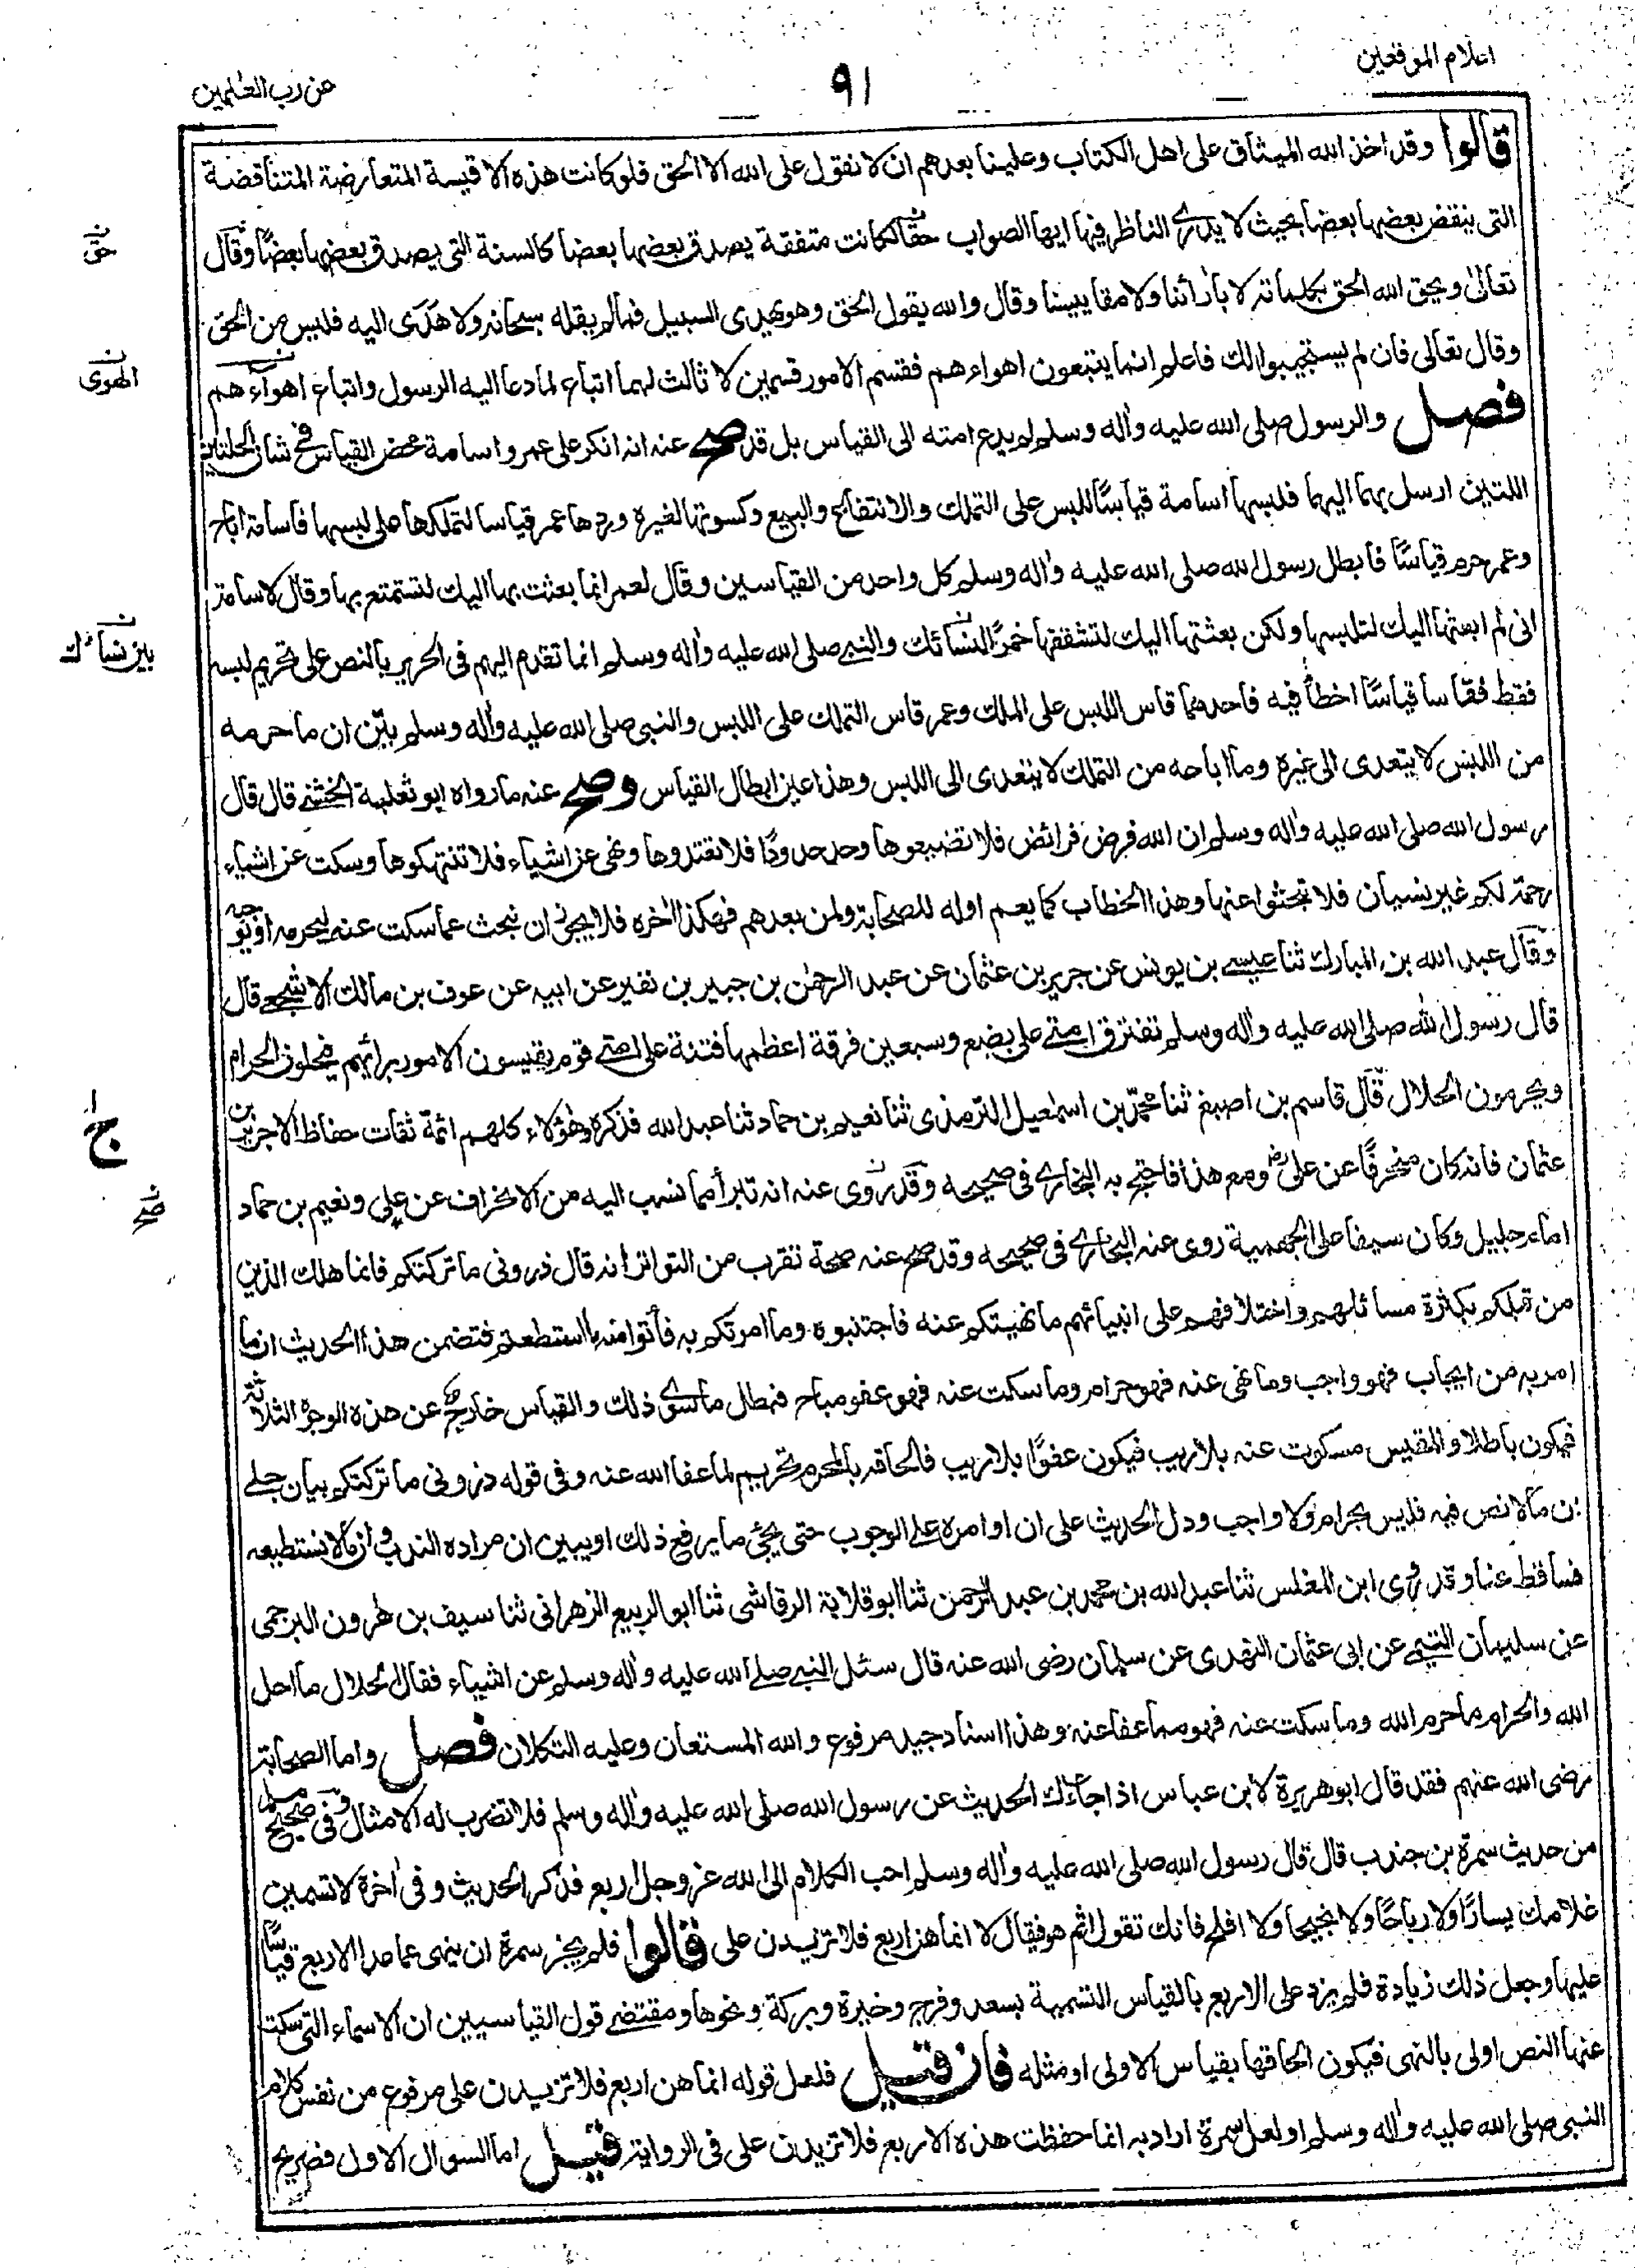 اعلام الموقعین
۹۱
عن رب العٰلمین
قالوا وقد اخذ الله الميثاق على اهل الكتاب وعلينا بعدهم ان لا نقول على الله الا الحق فلو كانت هذه الاقيسة المتعارضة المتناقضة
التى ينقض بعضها بعضا بحيث لا يدرى الناظر فيها ايها الصواب حقا لكانت متفقة يصدق بعضها بعضا كالسنة التى يصدق بعضها بعضًا وقال
حق
تعالىٰ ويحق الله الحق بكلماته لا بآرائنا ولا مقاييسنا وقال والله يقول الحق وهو يهدى السبيل فما لم يقله سبحانه ولا هدى اليه فليس من الحق
وقال تعالى فان لم يستجيبوا لك فاعلم انما يتبعون اهواءهم فقسم الامور قسمين لا ثالث لهما اتباع لما دعا اليه الرسول واتباع اهواءهم
الهوى
فصل والرسول صلى الله عليه واٰله وسلم لم يدع امته الى القياس بل قد صح عنه انه انكر على عمر واسامة محض القياس فى شان الحلتين
اللتين ارسل بهما اليهما فلبسها اسامة قياسًا للبس على التملك والانتفاع والبيع وكسوتها لغيره وردها عمر قياسا لتملكها على لبسها فاسامة اباح
وعمر حرم قياسًا فابطل رسول الله صلى الله عليه واٰله وسلم كل واحد من القياسين وقال لعمر انما بعثت بها اليك لتستمتع بها وقال لاسامة
انى لم ابعثها اليك لتلبسها ولكن بعثتها اليك لتشققها خمرًا لنسائك والنبى صلى الله عليه واٰله وسلم انما تقدم اليهم فى الحرير بالنص على تحريم لبسه
بين نسائك
فقط فقاسا قياسًا اخطأ فيه فاحدهما قاس اللبس على الملك وعمر قاس التملك على اللبس والنبى صلى الله عليه واٰله وسلم بيّن ان ما حرمه
من اللبس لا يتعدى الى غيره وما اباحه من التملك لا يتعدى الى اللبس وهذا عين ابطال القياس وصح عنه ما رواه ابو ثعلبة الخشنى قال قال
رسول الله صلى الله عليه واٰله وسلم ان الله فرض فرائض فلا تضيعوها وحد حدودًا فلا تعتدوها ونهى عن اشياء فلا تنتهكوها وسكت عن اشياء
رحمة لكم غير نسيان فلا تبحثوا عنها وهذا الخطاب كما يعم اوله للصحابة ولمن بعدهم فهكذا اٰخره فلا يجوز ان نبحث عما سكت عنه ليحرمه او يوجبه
وقال عبد الله بن المبارك ثنا عيسى بن يونس عن جرير بن عثمان عن عبد الرحمٰن بن جبير بن نفير عن ابيه عن عوف بن مالك الاشجعى قال
قال رسول الله صلى الله عليه واٰله وسلم تفترق امتى على بضع وسبعين فرقة اعظمها فتنة على امتى قوم يقيسون الامور برائهم فيحلون الحرام
ويحرمون الحلال قال قاسم بن اصبغ ثنا محمد بن اسمٰعيل الترمذى ثنا نعيم بن حماد ثنا عبد الله فذكره وهؤلاء كلهم ائمة ثقات حفاظ الا جرير بن
عثمان فانه كان منحرفًا عن على رض ومع هذا فاحتج به البخارى فى صحيحه وقد روى عنه انه تبرأ مما نسب اليه من الانحراف عن على ونعيم بن حماد
امام جليل وكان سيفا على الجهمية روى عنه البخارى فى صحيحه وقد صح عنه صحة تقرب من التواتر انه قال ذرونى ما تركتكم فانما هلك الذين
صح
من قبلكم بكثرة مسائلهم واختلافهم على انبيائهم ما نهيتكم عنه فاجتنبوه وما امرتكم به فأتوا منه ما استطعتم فتضمن هذا الحديث ان ما
امر به من ايجاب فهو واجب وما نهى عنه فهو حرام وما سكت عنه فهو عفو مباح فبطل ما سوى ذلك والقياس خارج عن هذه الوجوه الثلاثة
فيكون باطلا والمقيس مسكوت عنه بلا ريب فيكون عفوًا بلا ريب فالحاقه بالمحرم تحريم لما عفا الله عنه وفى قوله ذرونى ما تركتكم بيان جلى
ان ما لا نص فيه فليس بحرام ولا واجب ودل الحديث على ان اوامره على الوجوب حتى يجئ ما يرفع ذلك او يبين ان مراده الندب وان ما لا نستطيعه
فساقط عنا وقد روى ابن المغلس ثنا عبد الله بن محمد بن عبد الرحمن ثنا ابو قلابة الرقاشى ثنا ابو الربيع الزهرانى ثنا سيف بن هٰرون البرجمى
عن سليمان التيمى عن ابى عثمان النهدى عن سلمان رضى الله عنه قال سئل النبى صلى الله عليه واٰله وسلم عن اشياء فقال الحلال ما احل
الله والحرام ما حرم الله وما سكت عنه فهو مما عفا عنه وهذا اسناد جيد مرفوع والله المستعان وعليه التكلان فصل واما الصحابة
رضى الله عنهم فقد قال ابو هريرة لابن عباس اذا جاءك الحديث عن رسول الله صلى الله عليه واٰله وسلم فلا تضرب له الامثال وفى صحيح مسلم
من حديث سمرة بن جندب قال قال رسول الله صلى الله عليه واٰله وسلم احب الكلام الى الله عز وجل اربع فذكر الحديث وفى اٰخره لا تسمين
غلامك يسارًا ولا رباحًا ولا نجيحا ولا افلح فانك تقول اثم هو فيقال لا انما هن اربع فلا تزيدن على قالوا فلم يجز سمرة ان ينهى عما عدا الاربع قياسًا
عليها وجعل ذلك زيادة فلم يزد على الاربع بالقياس التسمية بسعد وفرج وخيرة وبركة ونحوها ومقتضى قول القياسيين ان الاسماء التى سكت
عنها النص اولى بالنهى فيكون الحاقها بقياس الاولى او مثله فان قيل فلعل قوله انما هن اربع فلا تزيدن على مرفوع من نفس كلام
النبى صلى الله عليه واٰله وسلم او لعل سمرة اراد به انما حفظت هذه الاربع فلا تزيدن على فى الرواية قيل اما السوال الاول فصريح